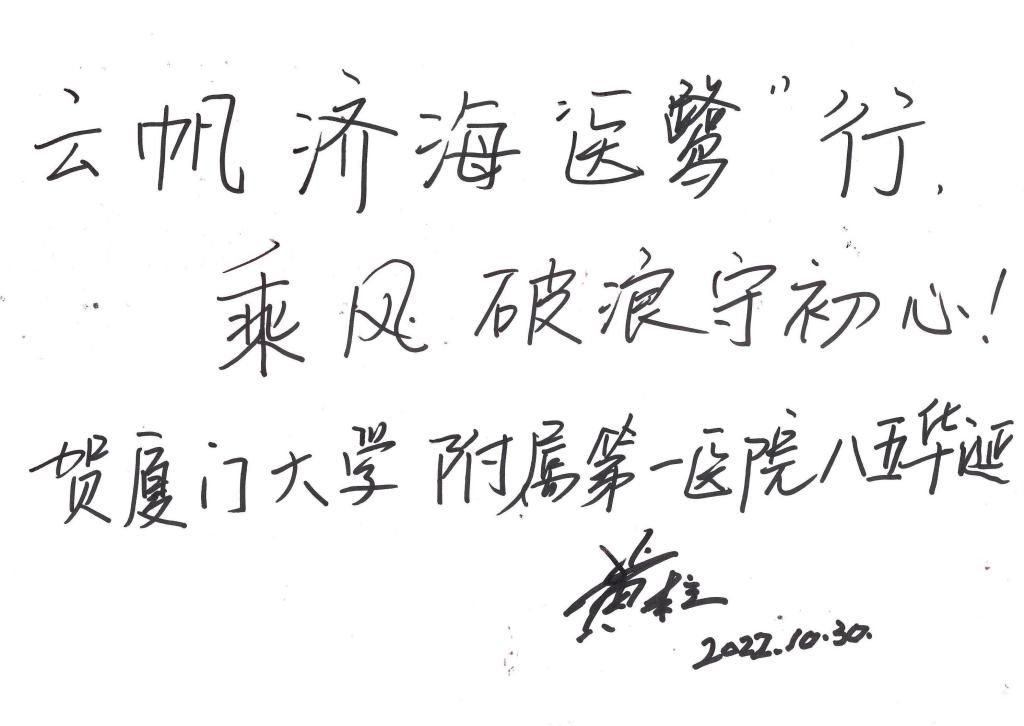 云帆济海“医鹭”行，
乘风破浪守初心！
贺厦门大学附属第一医院八五华诞
黄柱
2022.10.30.